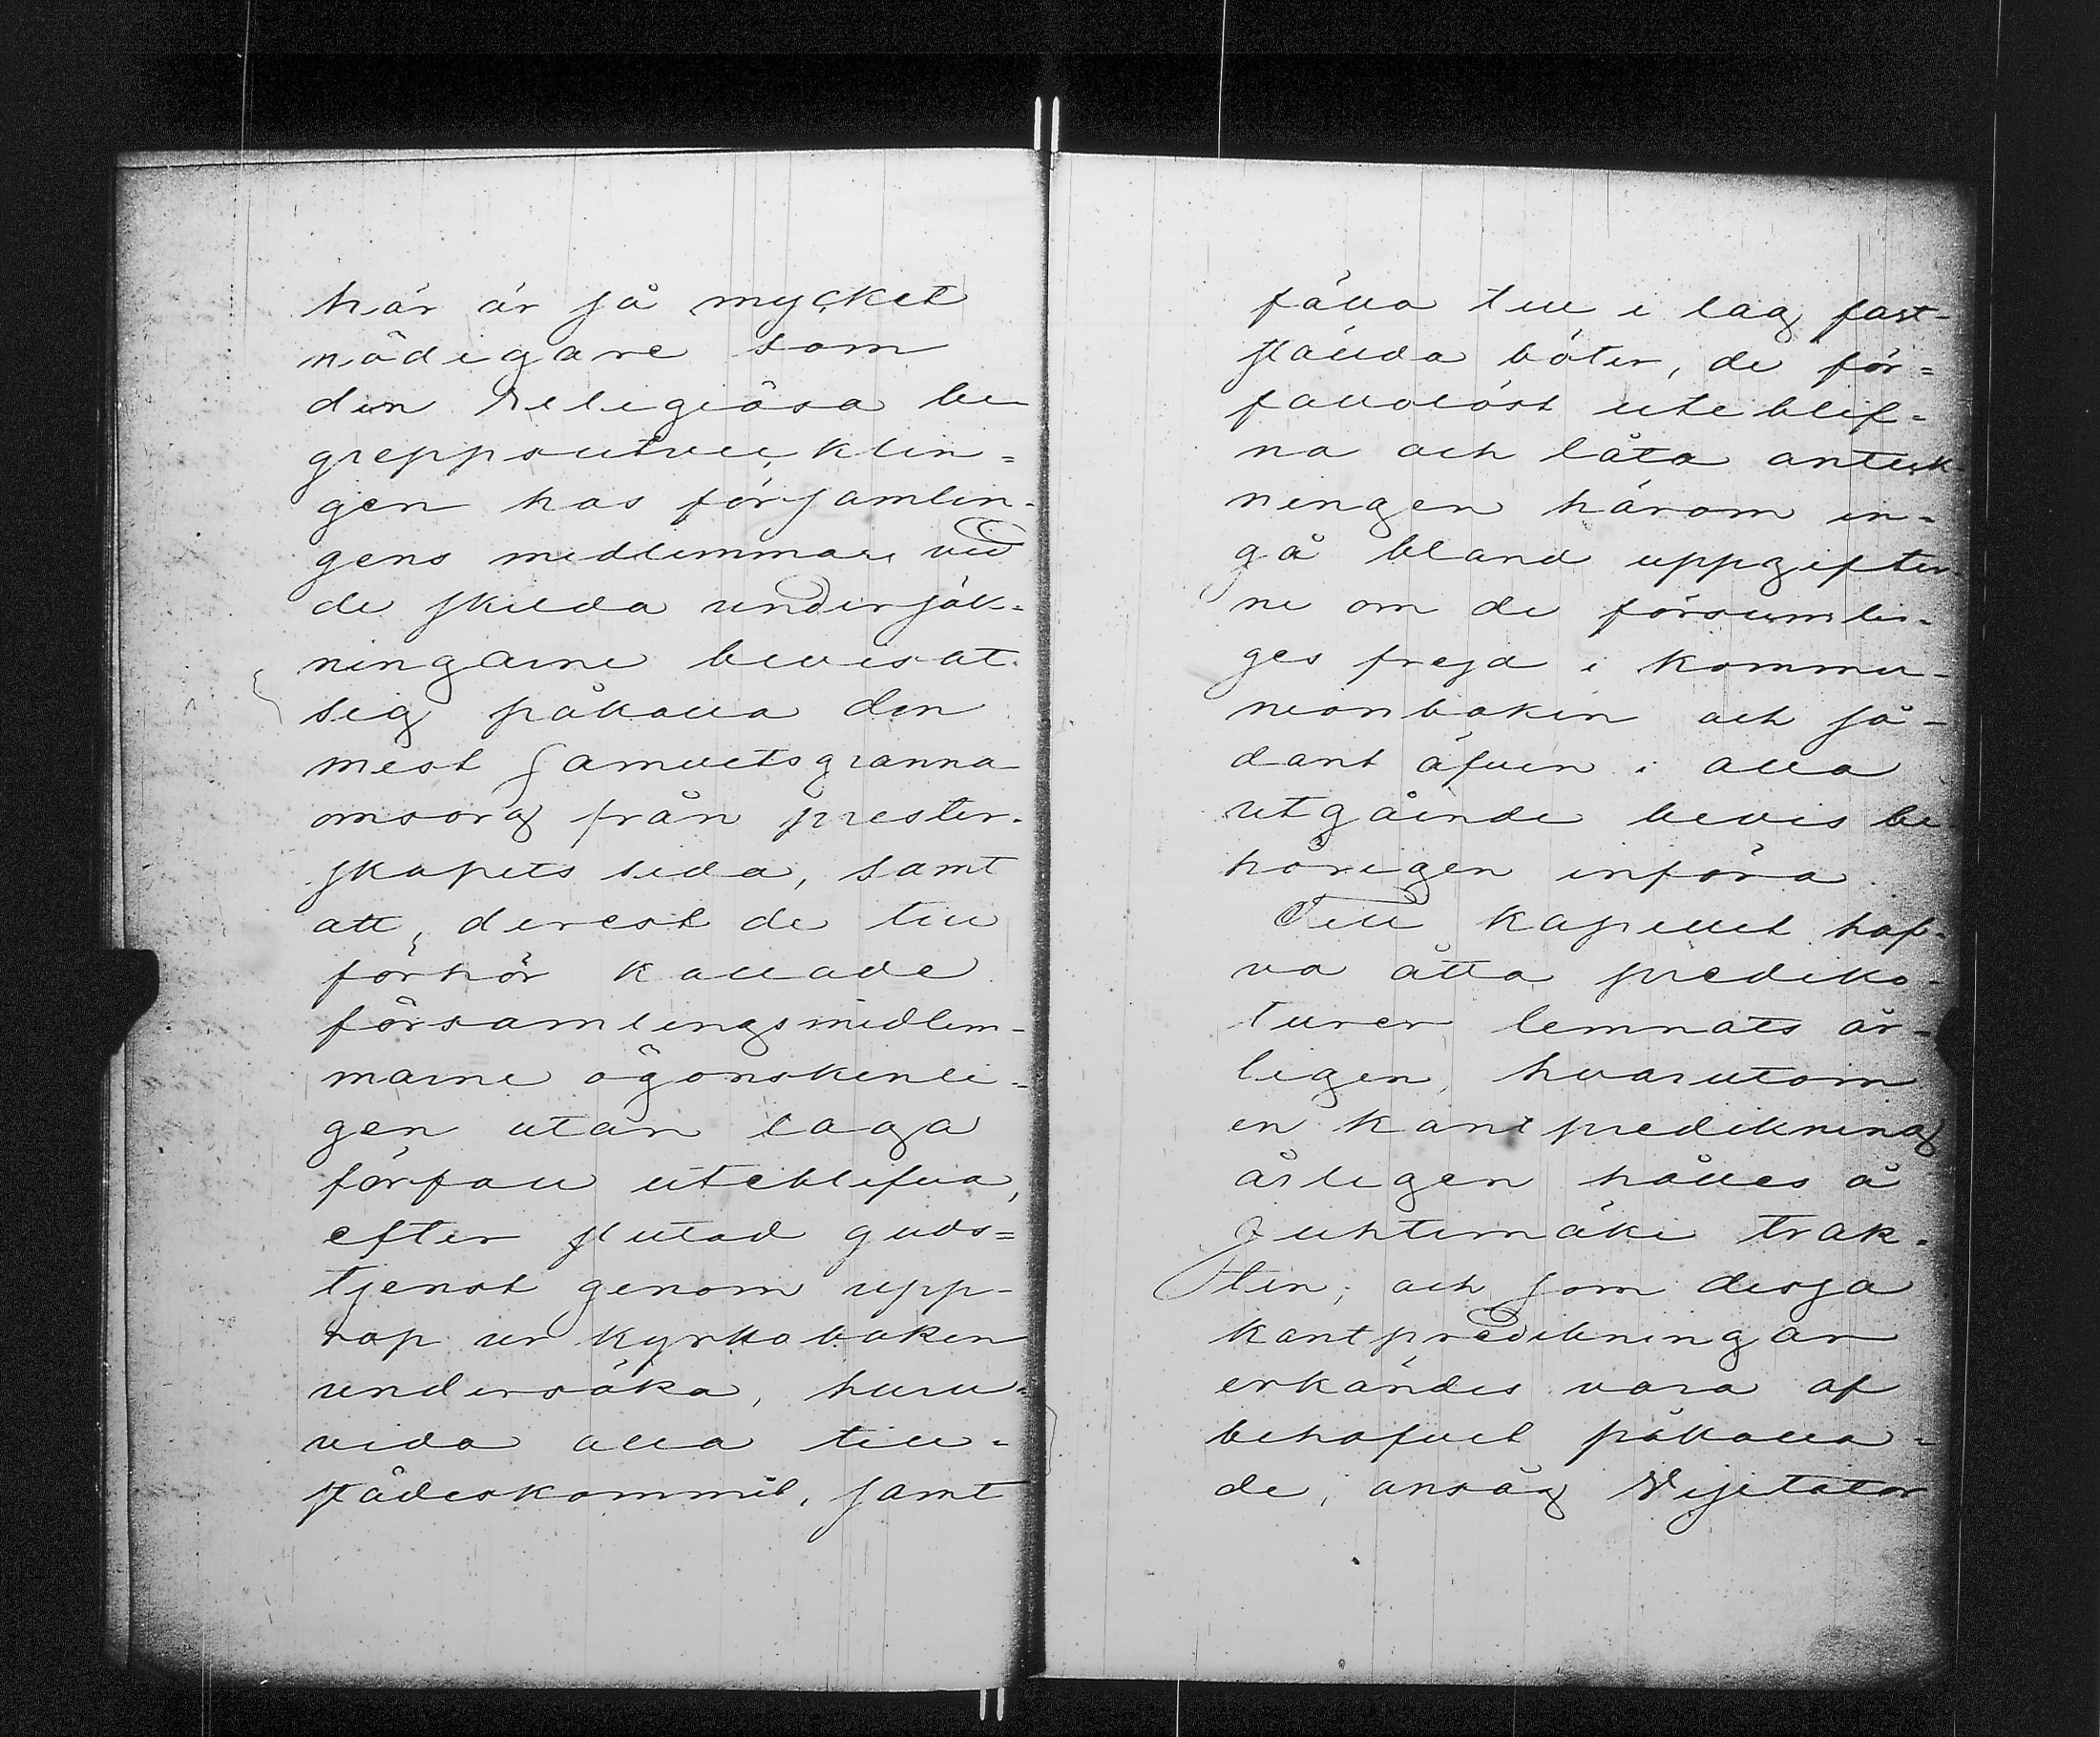 här är så mycket
nödigare som
den religiösa be
greppsutveck klin=
gen hos församlin-
gens medlemmar vid
de skilda undersök-
ningarne bevisat
sig påkalla den
mest samvetsgranna
omsorg från prester-
skapets sida, samt
att, derest de till
förhör kallade
församlingsmedlem-
marne ögonskenli-
gen utan laga
förfall uteblifva,
efter slutad guds=
tjenst genom upp-
rop ur kyrkoboken
undersöka, huru-
vida alla till-
städeskommit, samt
fälla till i lag fast-
stälda böter, de för=
fallolöst uteblif=
na och låta anteck-
ningen härom in-
gå bland uppgifter-
ne om de försumli-
ges frejd i kommu-
nionboken och så-
dant äfven i alla
utgående bevis be
hörigen införa.
Till kapellet haf-
va åtta prediko-
turer lemnats år-
ligen, hvarutom
en kantpredikning
årligen hålles å
Juhtimäki trak-
ten; och som dessa
kantpredikningar
erkändes vara af
behofvet påkalla=
de, ansåg Visitator